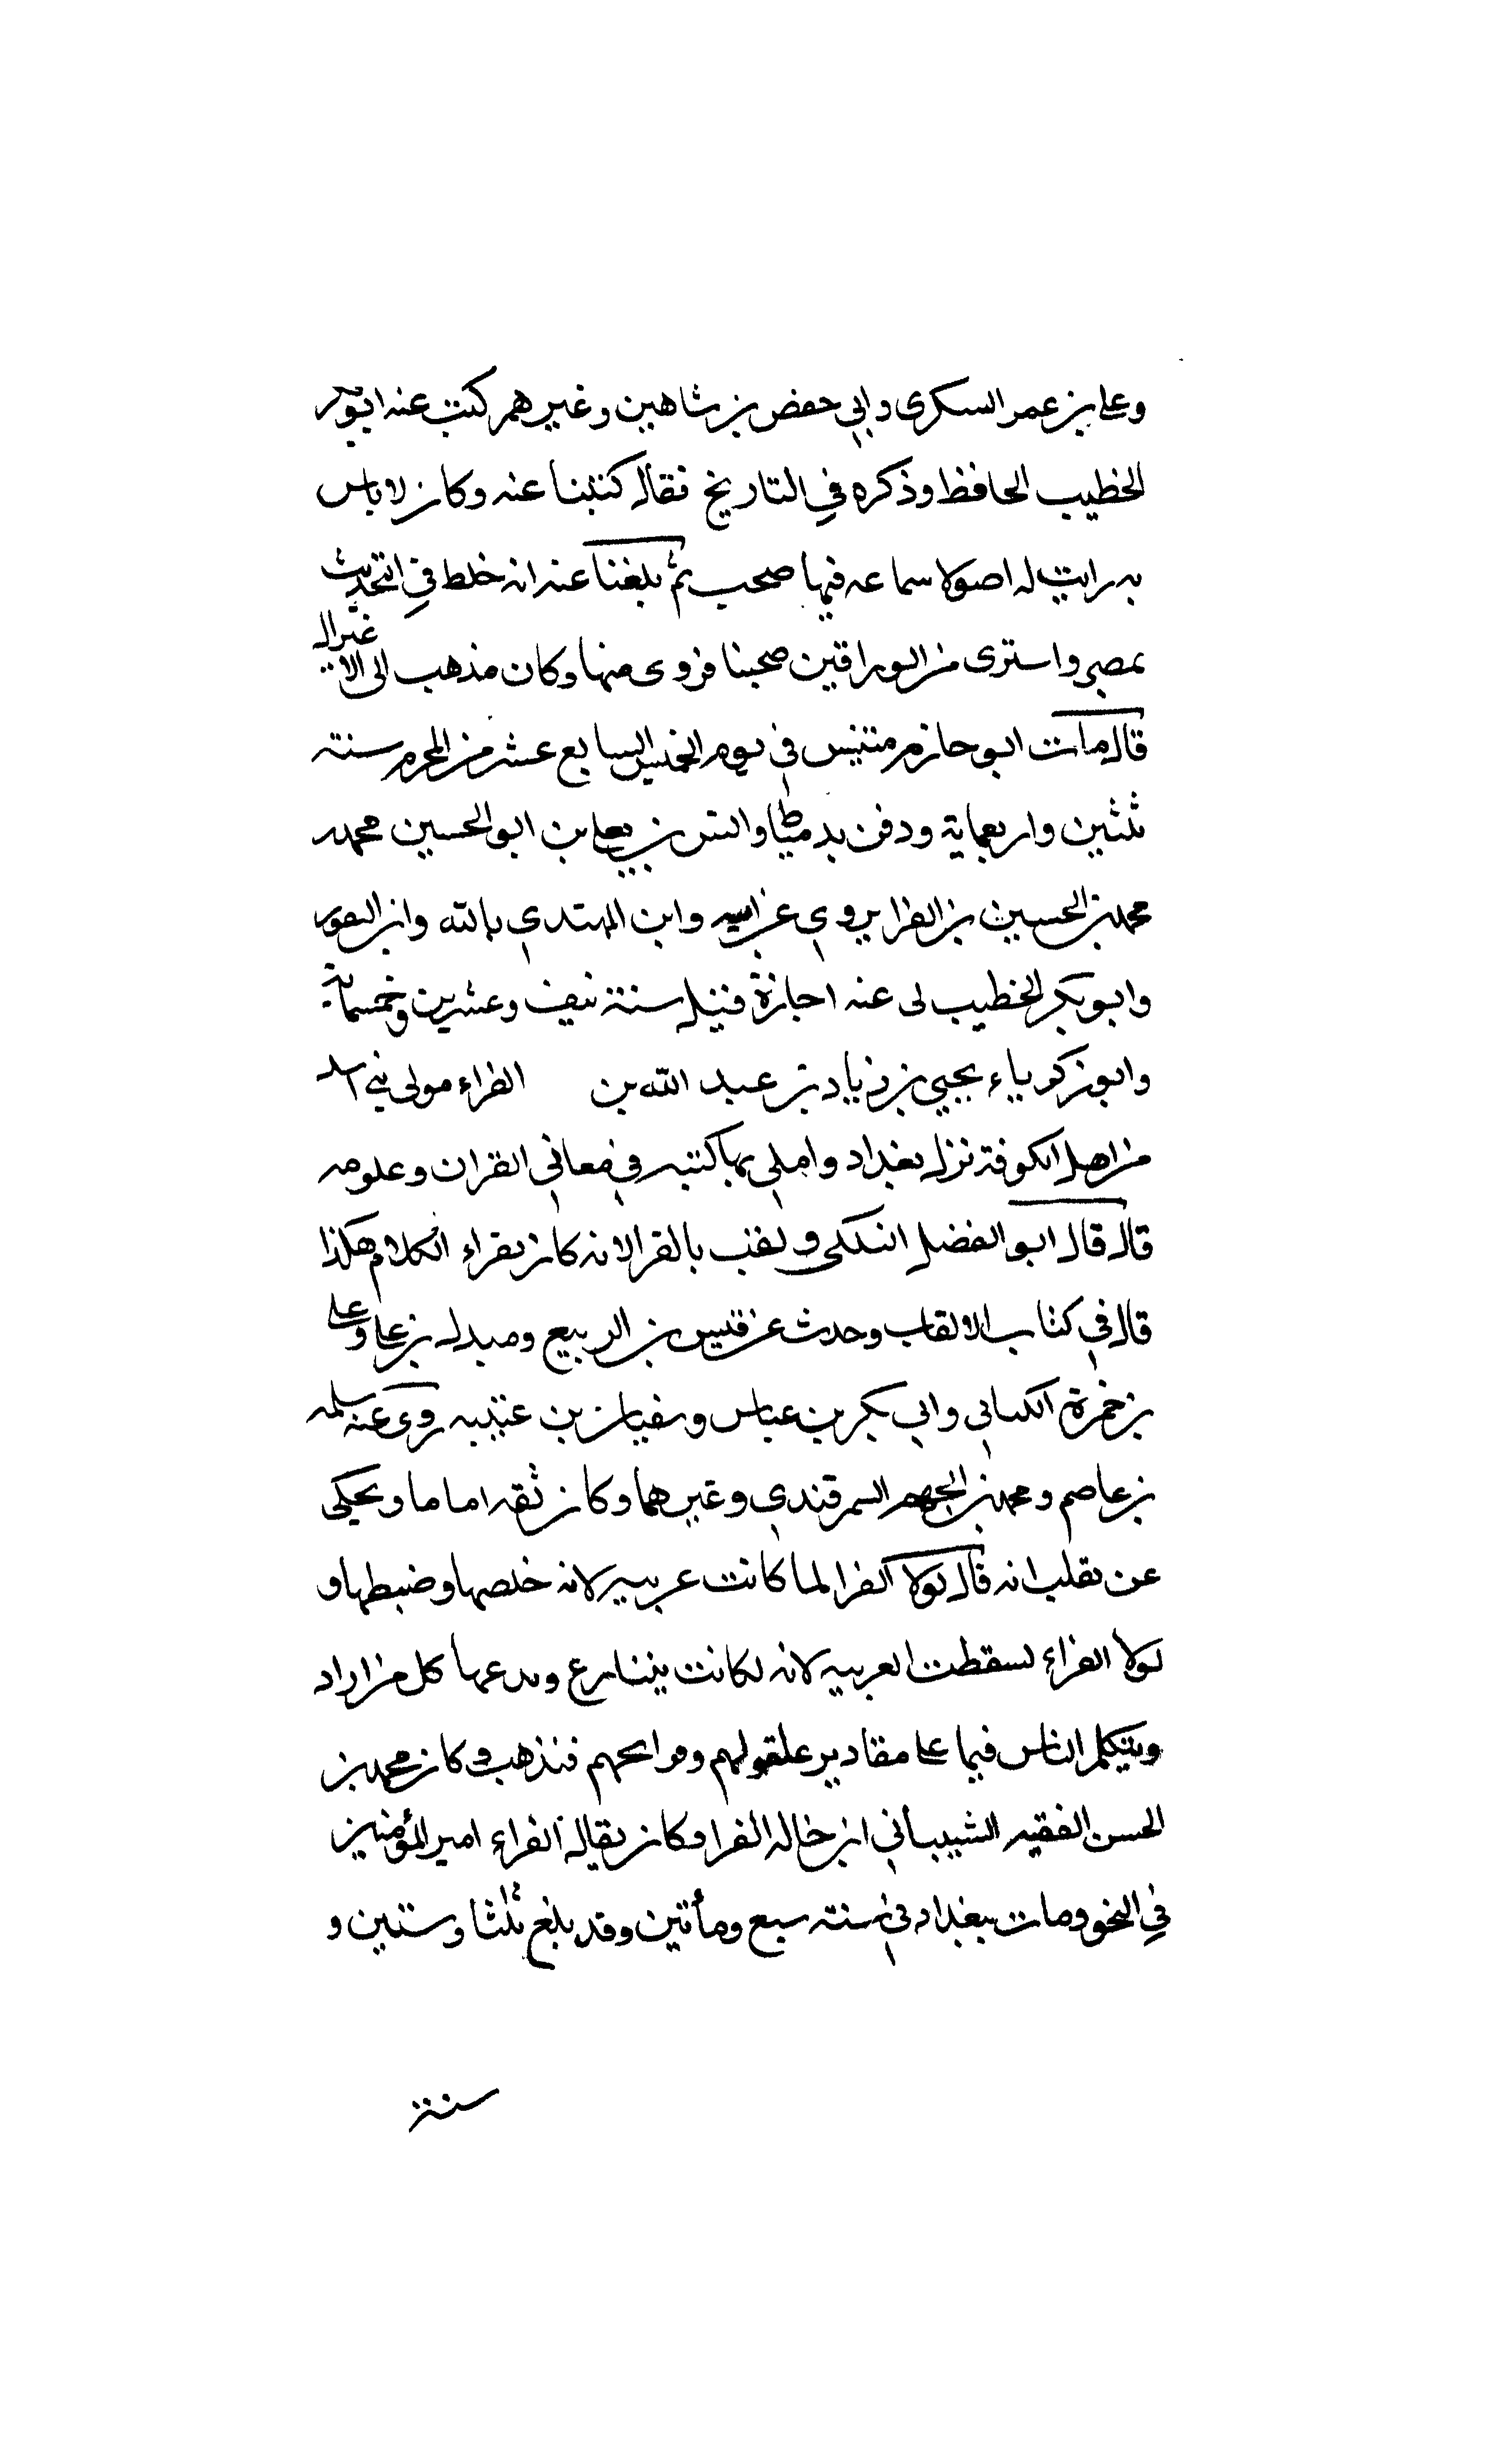 وعلي بن عمر السكرى وابي حفص بن شاهين وغيرهم كتب عنه ابو بكر
الخطيب الحافظ وذكره في التاريخ فقال كتبنا عنه وكان لا باس
به رايت له اصولا سماعه فيها صحب ثم بلغنا عنه انه خلط في التحديث
بمصر واسترى من الوراقين صحبنا فروى منها وكان مذهب الى الاعتزال
قال مات ابو حازم متنيس في يوم الخميس السابع عشر من المحرم سنته
ثلثين واربعماية ودفن بدمياط بن ابو الحسين محمد
محمد بن الحسين بن الفرا يروي عن ابيه وابن المهتدي بالله وابن النقور
وابو بكر الخطيب لى عنه اجازة قتيل سنة نيف وعشرين وخمسماية
وابو زكرياء يحيي بن زياد بن عبد الله بن الفراء مولى بني اسد
من اهل الكوفة نزل بغداد واملي بها كتبه في معاني القران وعلومه
قال قال ابو الفضل الفلكى ولقب بالفرا لانه كان يفراء الكلام هكذا
قال في كتاب الالقاب وحدث عن قيس بن الربيع ومبدل بن علي وعلي
بن حمزة الكسايي وابي بكر بن عياس وسفيان بن عتيبه روى عنه سلمه
بن عاصم ومحمد بن الجهم السمرقندي وغيرهما وكان ثقه اماما ويحكى
عن تقلب انه قال لولا الفرا لما كانت عربيه لانه خلصها وضبطها و
لولا الفراء لسقطت العربيه لانه لكانت يتنازع ويدعيها كل من اراد
ويتكلم الناس فيها على مقادير علقولهم وقرايحهم فتذهب وكان محمد بن
الحسن الفقيه الشيباني ابن خاله الفرا وكان يقال الفراء امير المؤمنين
في النحو ومات ببغداد في سنته سبع ومأتين وقد بلغ ثلثا وستين و
سنة